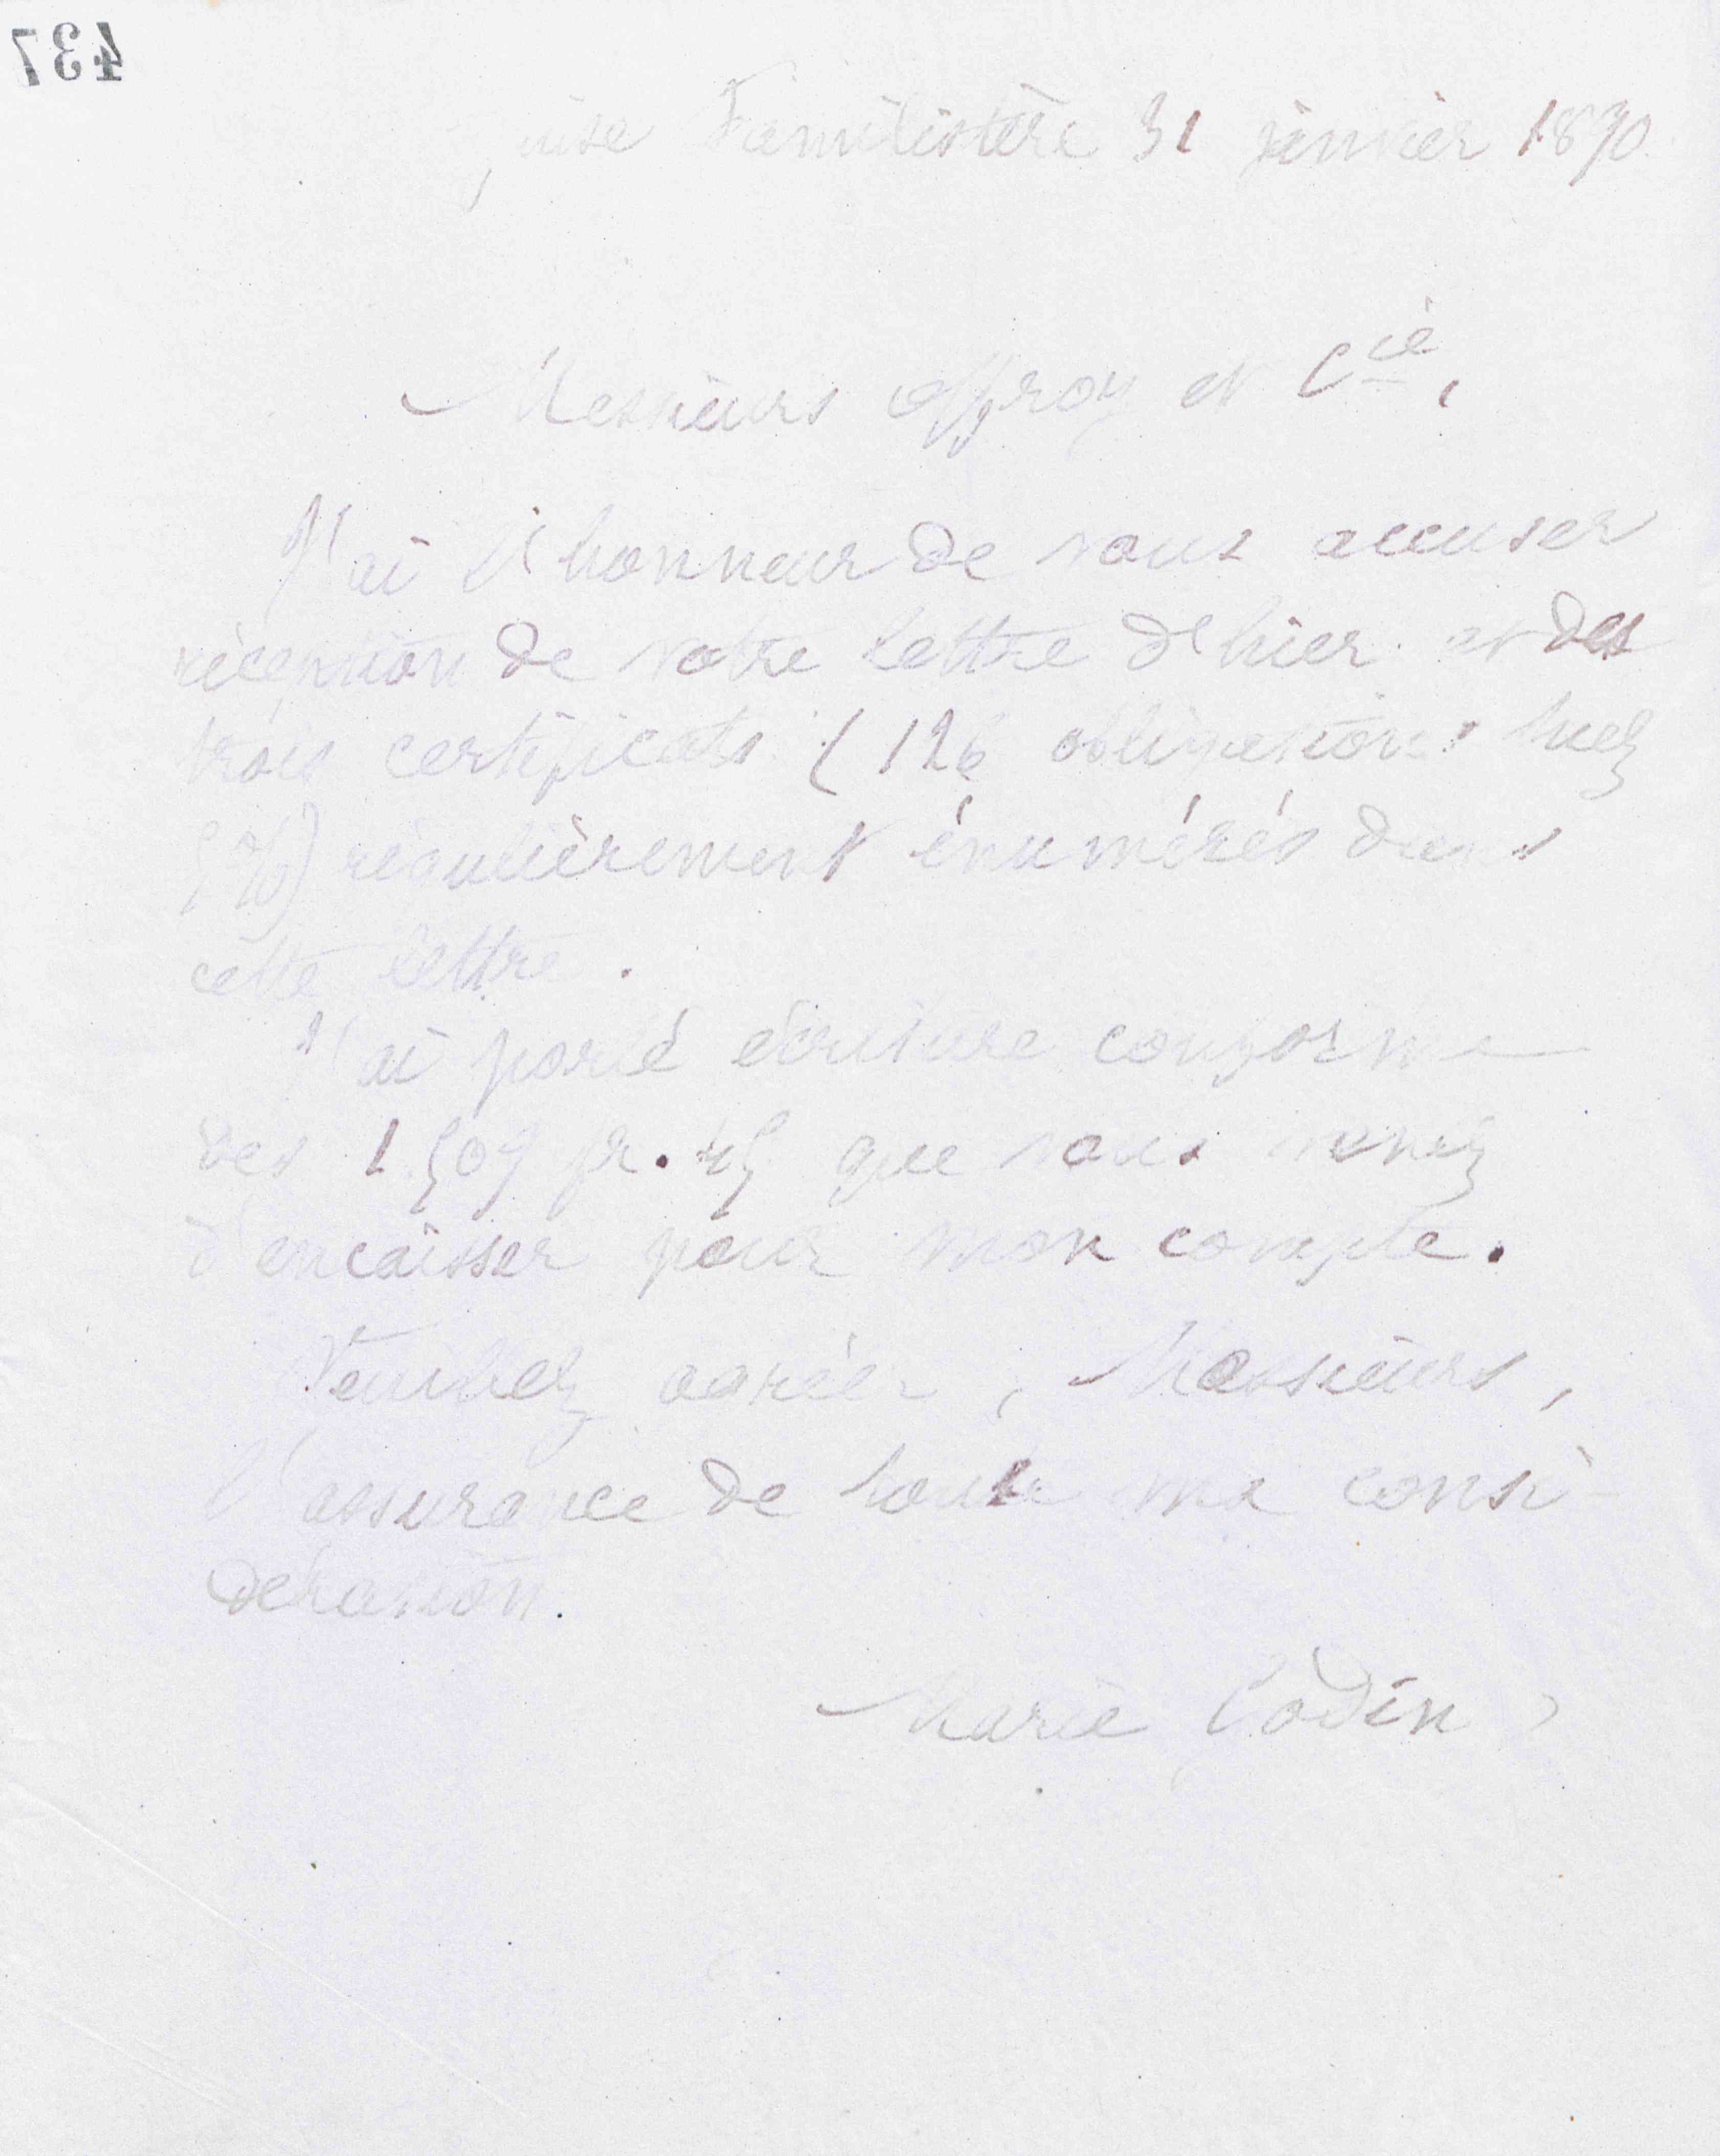 437
Guise Familistère 31 janvier 1890
Messieurs Offroy et Cie,
J'ai l'honneur de vous accuser
réception de votre lettre d'hier et des
trois certificats (126 obligations Suez
5 %) régulièrement énumérés dans
cette lettre.
J'ai porté écriture conforme
des 1.509 fr. 45 que vous venez
d'encaisser pour mon compte.
Veuillez agréer, Messieurs,
l'assurance de toute ma consi-
dération.
Marie Godin